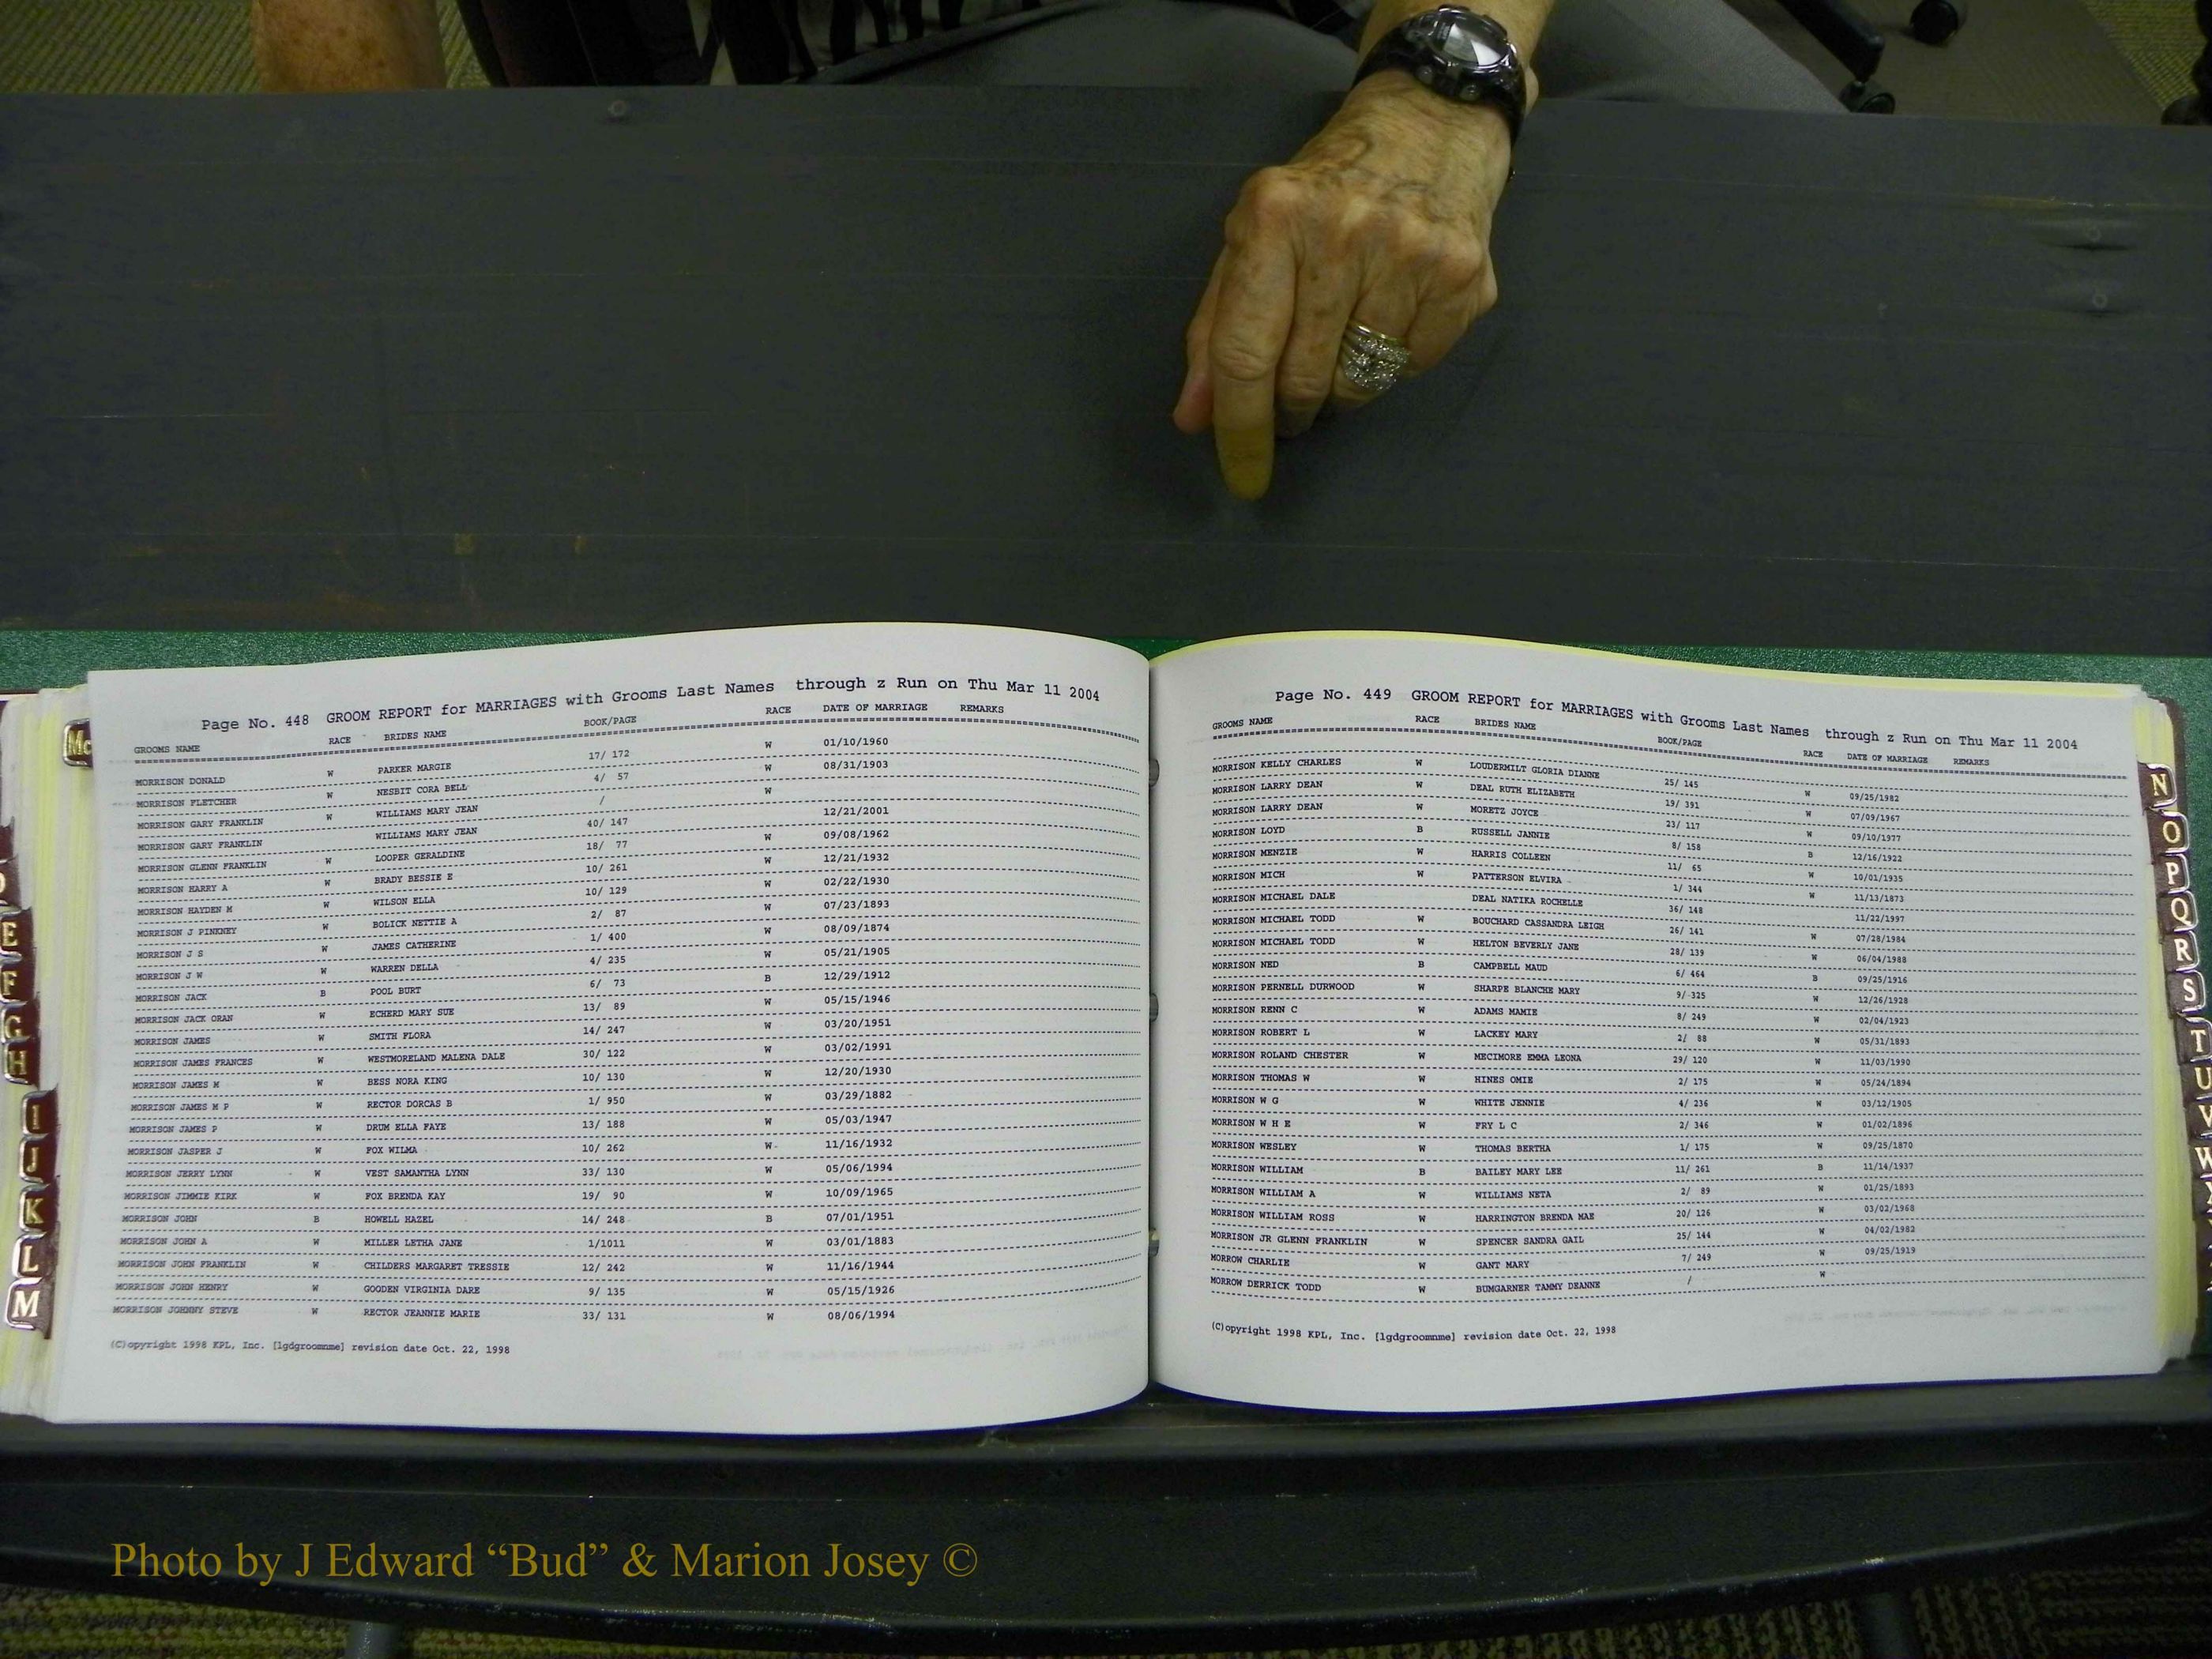 Page No. 448 GROOM REPORT for MARRIAGES with Grooms Last Names through z Run on Thu Mar 11 2004
GROOMS NAME RACE BRIDES NAME BOOK/PAGE RACE DATE OF MARRIAGE REMARKS
MORRISON DONALD W PARKER MARGIE 17/ 172 W 01/10/1960
MORRISON FLETCHER W NESBIT CORA BELL 4/ 57 W 08/31/1903
MORRISON GARY FRANKLIN W WILLIAMS MARY JEAN / W
MORRISON GARY FRANKLIN WILLIAMS MARY JEAN 40/ 147 12/21/2001
MORRISON GLENN FRANKLIN W LOOPER GERALDINE 18/ 77 W 09/08/1962
MORRISON HARRY A W BRADY BESSIE E 10/ 261 W 12/21/1932
MORRISON HAYDEN M W WILSON ELLA 10/ 129 W 02/22/1930
MORRISON J PINKNEY W BOLICK NETTIE A 2/ 87 W 07/23/1893
MORRISON J S W JAMES CATHERINE 1/ 400 W 08/09/1874
MORRISON J W W WARREN DELLA 4/ 235 W 05/21/1905
MORRISON JACK B POOL BURT 6/ 73 B 12/29/1912
MORRISON JACK ORAN W ECHERD MARY SUE 13/ 89 W 05/15/1946
MORRISON JAMES W SMITH FLORA 14/ 247 W 03/20/1951
MORRISON JAMES FRANCES W WESTMORELAND MALENA DALE 30/ 122 W 03/02/1991
MORRISON JAMES M W BESS NORA KING 10/ 130 W 12/20/1930
MORRISON JAMES M P W RECTOR DORCAS B 1/ 950 W 03/29/1882
MORRISON JAMES P W DRUM ELLA FAYE 13/ 188 W 05/03/1947
MORRISON JASPER J W FOX WILMA 10/ 262 W 11/16/1932
MORRISON JERRY LYNN W VEST SAMANTHA LYNN 33/ 130 W 05/06/1994
MORRISON JIMMIE KIRK W FOX BRENDA KAY 19/ 90 W 10/09/1965
MORRISON JOHN B HOWELL HAZEL 14/ 248 B 07/01/1951
MORRISON JOHN A W MILLER LETHA JANE 1/1011 W 03/01/1883
MORRISON JOHN FRANKLIN W CHILDERS MARGARET TRESSIE 12/ 242 W 11/16/1944
MORRISON JOHN HENRY W GOODEN VIRGINIA DARE 9/ 135 W 05/15/1926
MORRISON JOHNNY STEVE W RECTOR JEANNIE MARIE 33/ 131 W 08/06/1994
(C)opyright 1998 KPL, Inc. [lgdgroomnme] revision date Oct. 22, 1998
Page No. 449 GROOM REPORT for MARRIAGES with Grooms Last Names through z Run on Thu Mar 11 2004
GROOMS NAME RACE BRIDES NAME BOOK/PAGE RACE DATE OF MARRIAGE REMARKS
MORRISON KELLY CHARLES W LOUDERMILT GLORIA DIANNE 25/ 145 W 09/25/1982
MORRISON LARRY DEAN W DEAL RUTH ELIZABETH 19/ 391 W 07/09/1967
MORRISON LARRY DEAN W MORETZ JOYCE 23/ 117 W 09/10/1977
MORRISON LOYD B RUSSELL JANNIE 8/ 158 B 12/16/1922
MORRISON MENZIE W HARRIS COLLEEN 11/ 65 W 10/01/1935
MORRISON MICH W PATTERSON ELVIRA 1/ 344 W 11/13/1873
MORRISON MICHAEL DALE DEAL NATIKA ROCHELLE 36/ 148 11/22/1997
MORRISON MICHAEL TODD W BOUCHARD CASSANDRA LEIGH 26/ 141 W 07/28/1984
MORRISON MICHAEL TODD W HELTON BEVERLY JANE 28/ 139 W 06/04/1988
MORRISON NED B CAMPBELL MAUD 6/ 464 B 09/25/1916
MORRISON PERNELL DURWOOD W SHARPE BLANCHE MARY 9/ 325 W 12/26/1928
MORRISON RENN C W ADAMS MAMIE 8/ 249 W 02/04/1923
MORRISON ROBERT L W LACKEY MARY 2/ 88 W 05/31/1893
MORRISON ROLAND CHESTER W MECIMORE EMMA LEONA 29/ 120 W 11/03/1990
MORRISON THOMAS W W HINES OMIE 2/ 175 W 05/24/1894
MORRISON W G W WHITE JENNIE 4/ 236 W 03/12/1905
MORRISON W H E W FRY L C 2/ 346 W 01/02/1896
MORRISON WESLEY W THOMAS BERTHA 1/ 175 W 09/25/1870
MORRISON WILLIAM B BAILEY MARY LEE 11/ 261 B 11/14/1937
MORRISON WILLIAM A W WILLIAMS NETA 2/ 89 W 01/25/1893
MORRISON WILLIAM ROSS W HARRINGTON BRENDA MAE 20/ 126 W 03/02/1968
MORRISON JR GLENN FRANKLIN W SPENCER SANDRA GAIL 25/ 144 W 04/02/1982
MORROW CHARLIE W GANT MARY 7/ 249 W 09/25/1919
MORROW DERRICK TODD W BUMGARNER TAMMY DEANNE / W
(C)opyright 1998 KPL, Inc. [lgdgroomnme] revision date Oct. 22, 1998
Mc
E
F
G
H
I
J
K
L
M
N
O
P
Q
R
S
T
U
V
W
Photo by J Edward “Bud” & Marion Josey ©